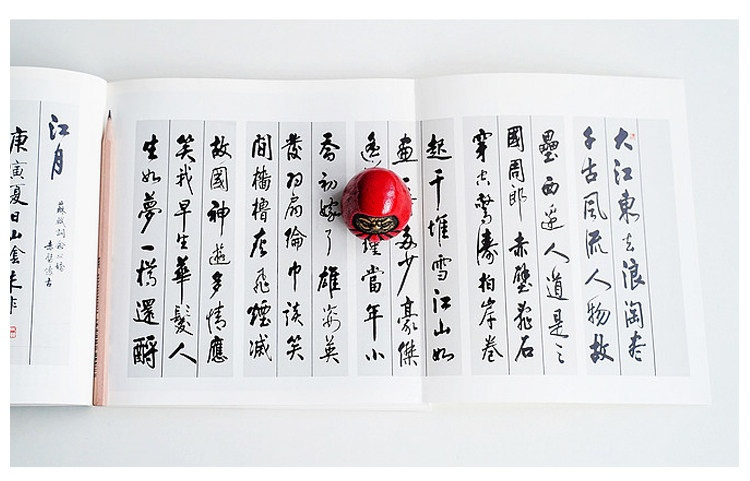 大江東去浪淘盡
千古風流人物故
壘西邊人道是三
國周郎赤壁亂石
穿空驚濤拍岸卷
起千堆雪江山如
畫一多少豪傑
遙瑾當年小
喬初嫁了雄姿英
發羽扇綸巾談笑
間檣櫓灰飛煙滅
故國神遊多情應
笑我早生華髮人
生如夢一樽還酹
江月
蘇軾詞念奴嬌
赤壁懷古
庚寅夏日山